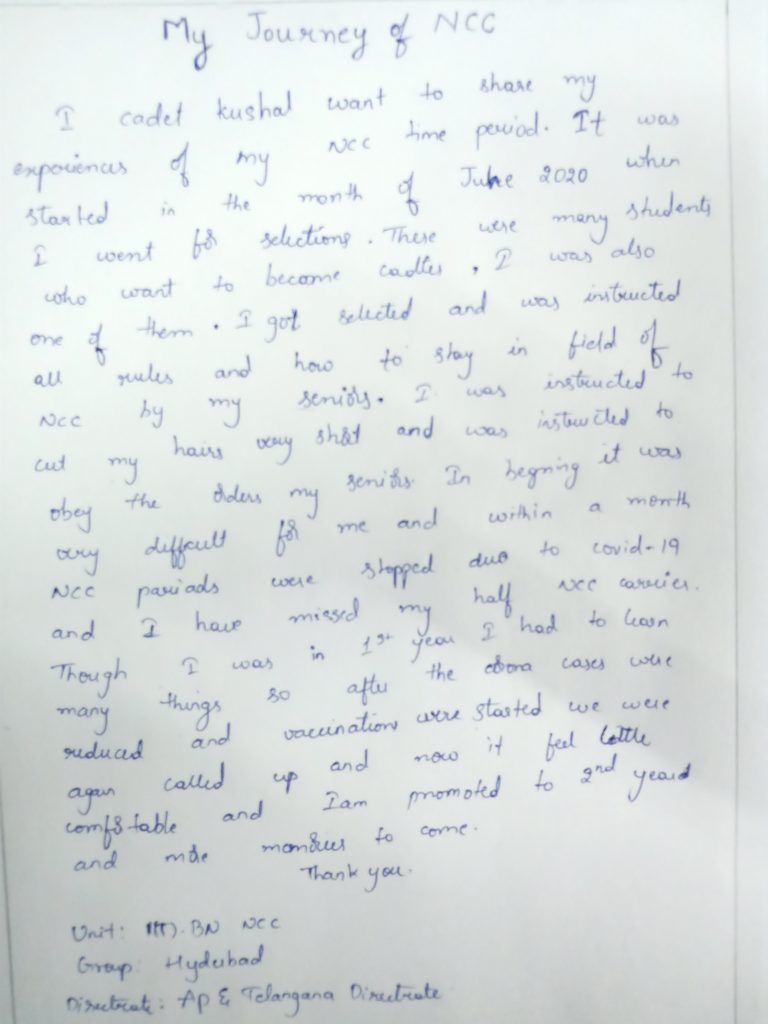 My Journey of NCC
I cadet kushal want to share my
experiences of my NCC time period. It was
started in the month of June 2020 when
I went for selections. There were many students
who want to become cadtes. I was also
one of them. I got selected and was instructed
all rules and how to stay in field of
NCC by my seniors. I was instructed to
cut my hairs very short and was instructed to
obey the orders my seniors. In begning it was
very diffcult for me and within a month
NCC pariads were stopped due to covid-19
and I have missed my half NCC carrier.
Though I was in 1st year I had to learn
many things so after the corona cases were
reduced and vaccinations were started we were
again called up and now it feel little
comfortable and I am promoted to 2nd year
and more to come.
Thank you.
Unit: BN NCC
Group: Hyderbad
Directrate: Ap & Telangana Directrate